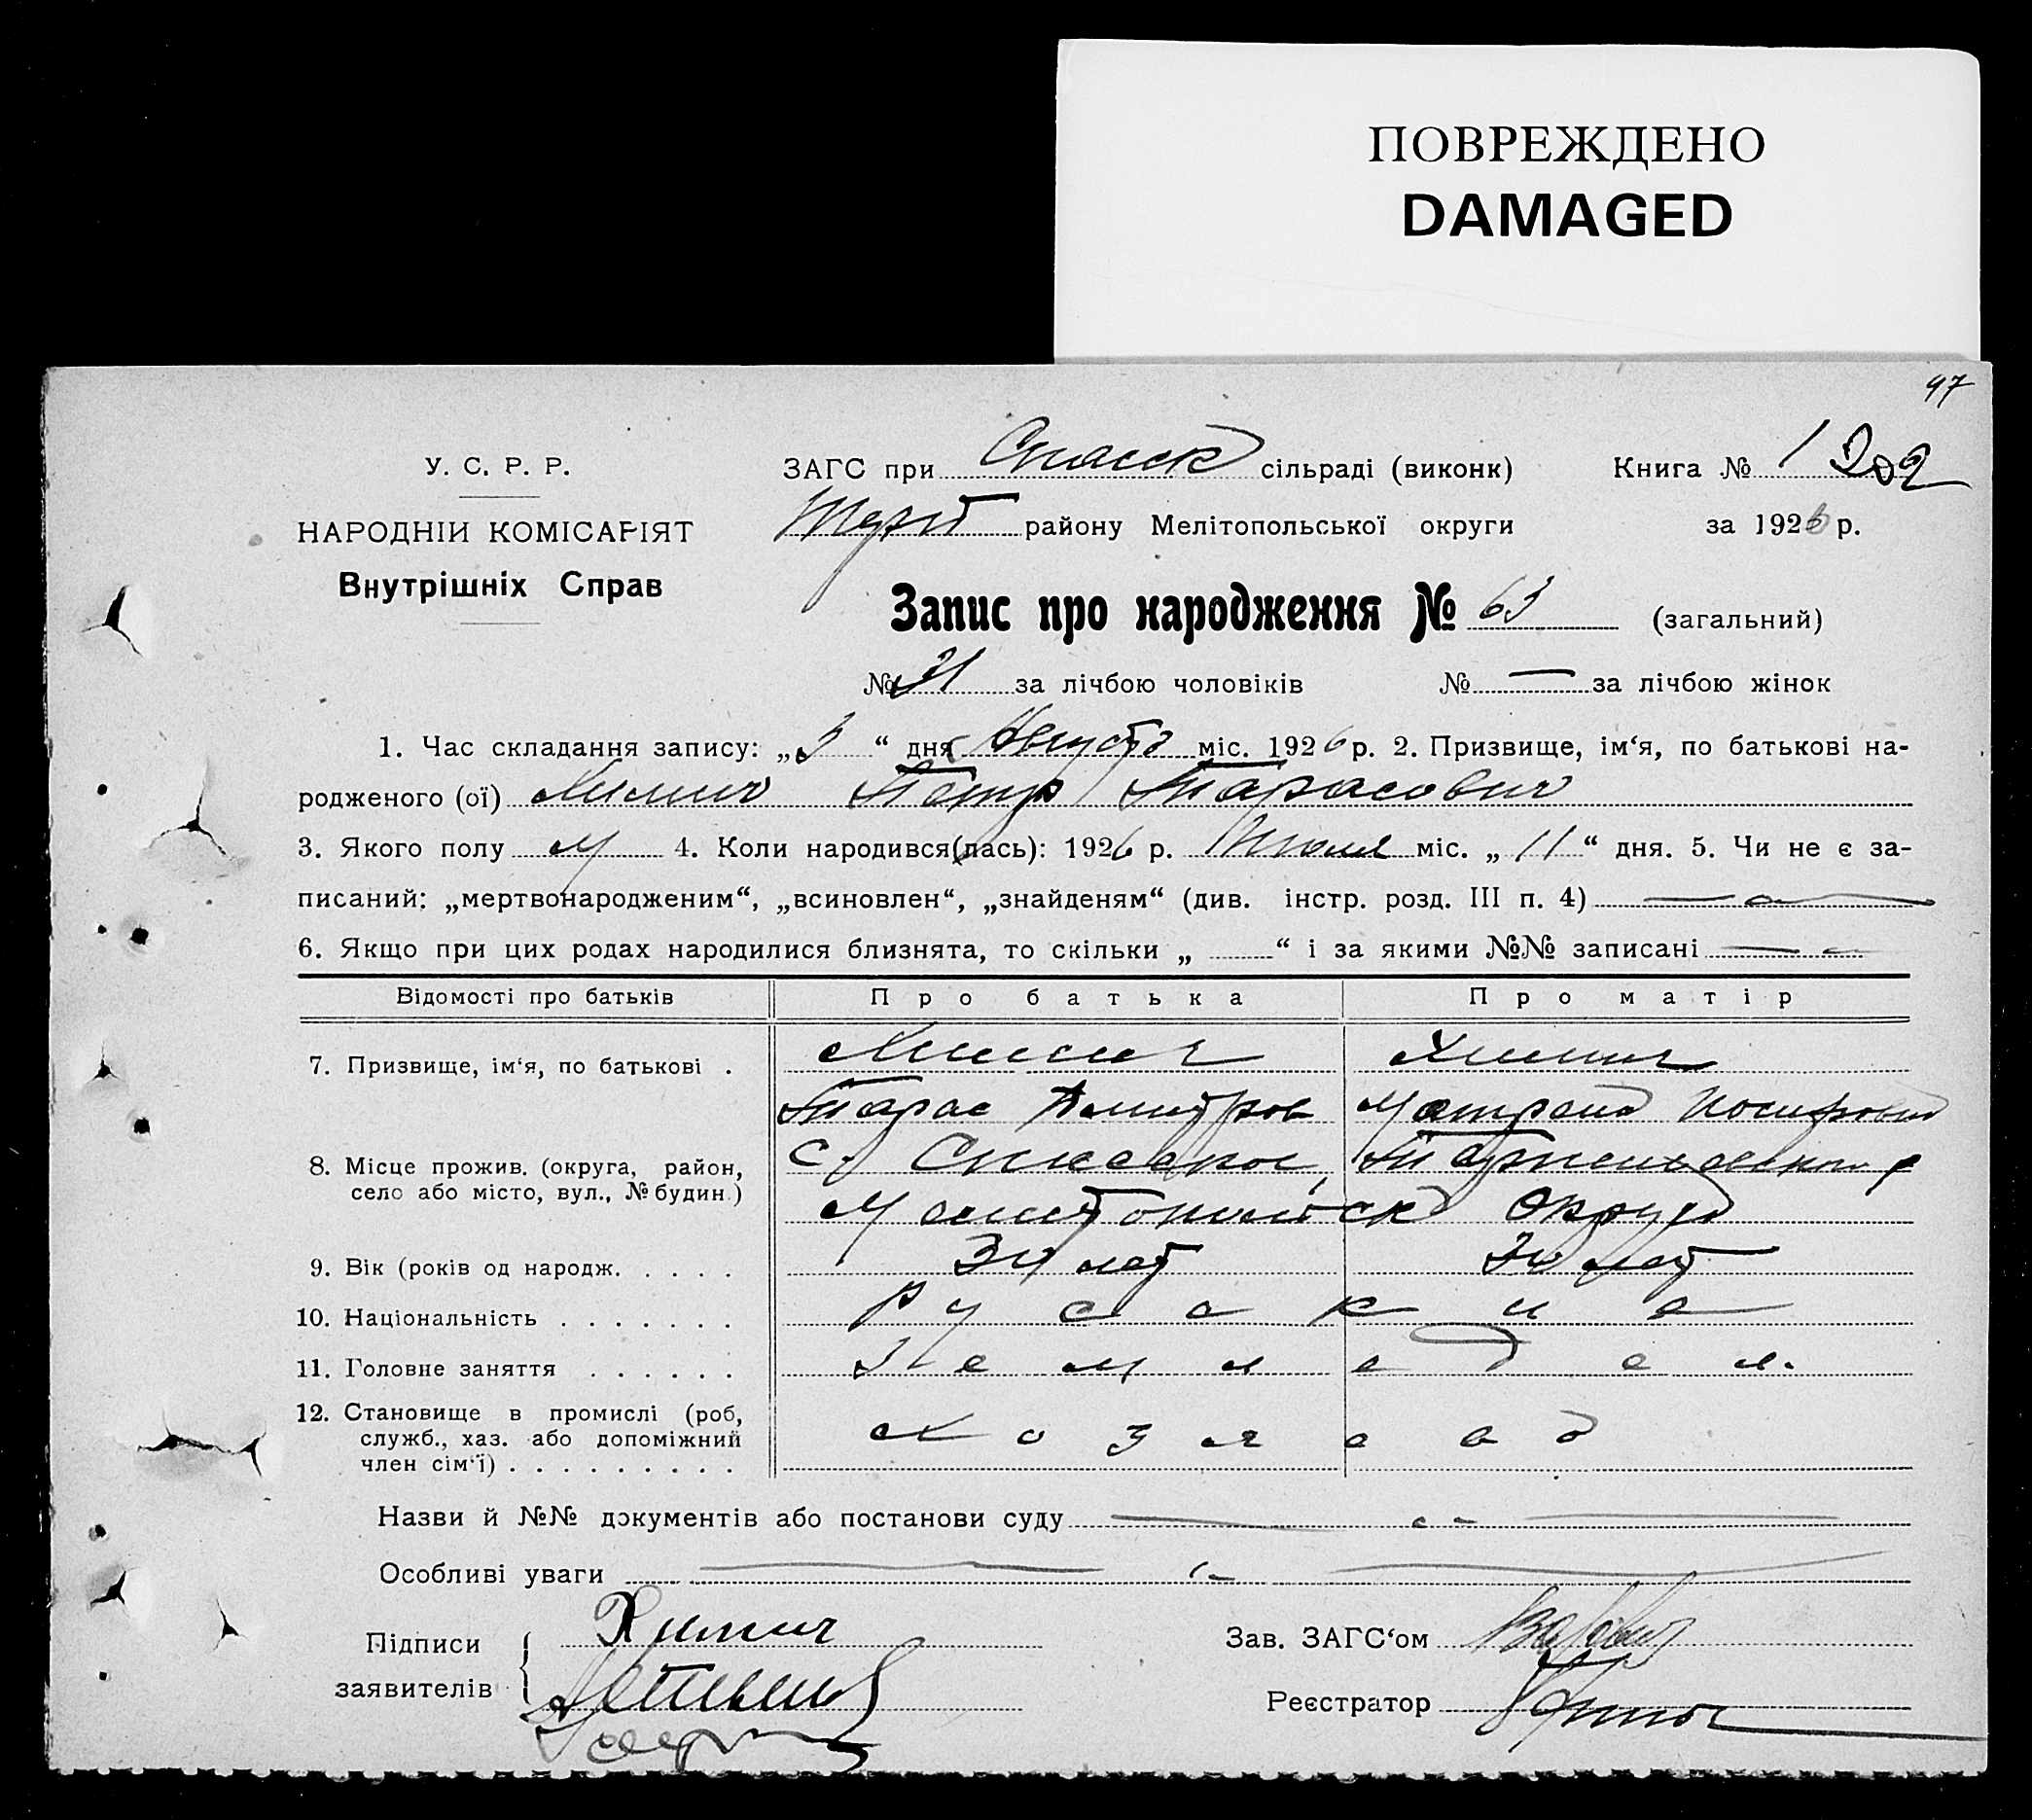 ПОВРЕЖДЕНО
DAMAGED
97
У. С. Р. Р.
ЗАГС при Спасск сільраді (виконк)
Книга № 1 202
НАРОДНІЙ КОМІСАРІЯТ
району Мелітопольської округи
за 1926 р.
Внутрішніх Справ
Запис про народження № 63 (загальний)
№ 31 за лічбою чоловіків № — за лічбою жінок
1. Час складання запису: „3“ дня Августа міс. 1926 р. 2. Призвище, ім‘я, по батькові на-
родженого (ої) Химич Петр Тарасович
3. Якого полу м 4. Коли народився(лась): 1926 р. Июля міс. „11“ дня. 5. Чи не є за-
писаний: „мертвонародженим“, „всиновлен“, „знайденям“ (див. інстр. розд. III п. 4) —
6. Якщо при цих родах народилися близнята, то скільки „ “ і за якими №№ записані —
Відомості про батьків Про батька Про матір
7. Призвище, ім‘я, по батькові . Химич Химич
Тарас Дмитров Матрена Иосифовна
8. Місце прожив. (округа, район,
село або місто, вул., № будин.)
с. Спасское,
Мелитопольск округа
9. Вік (років од народж. . . . . 34 лет 30 лет
10. Національність . . . . . . . русакие
11. Головне заняття . . . . . . Земледел.
12. Становище в промислі (роб,
служб., хаз. або допоміжний
член сім‘ї) . . . . . . . . .
Назви й №№ документів або постанови суду —
Особливі уваги —
Підписи
заявителів
Химич
Зав. ЗАГС‘ом
Реєстратор